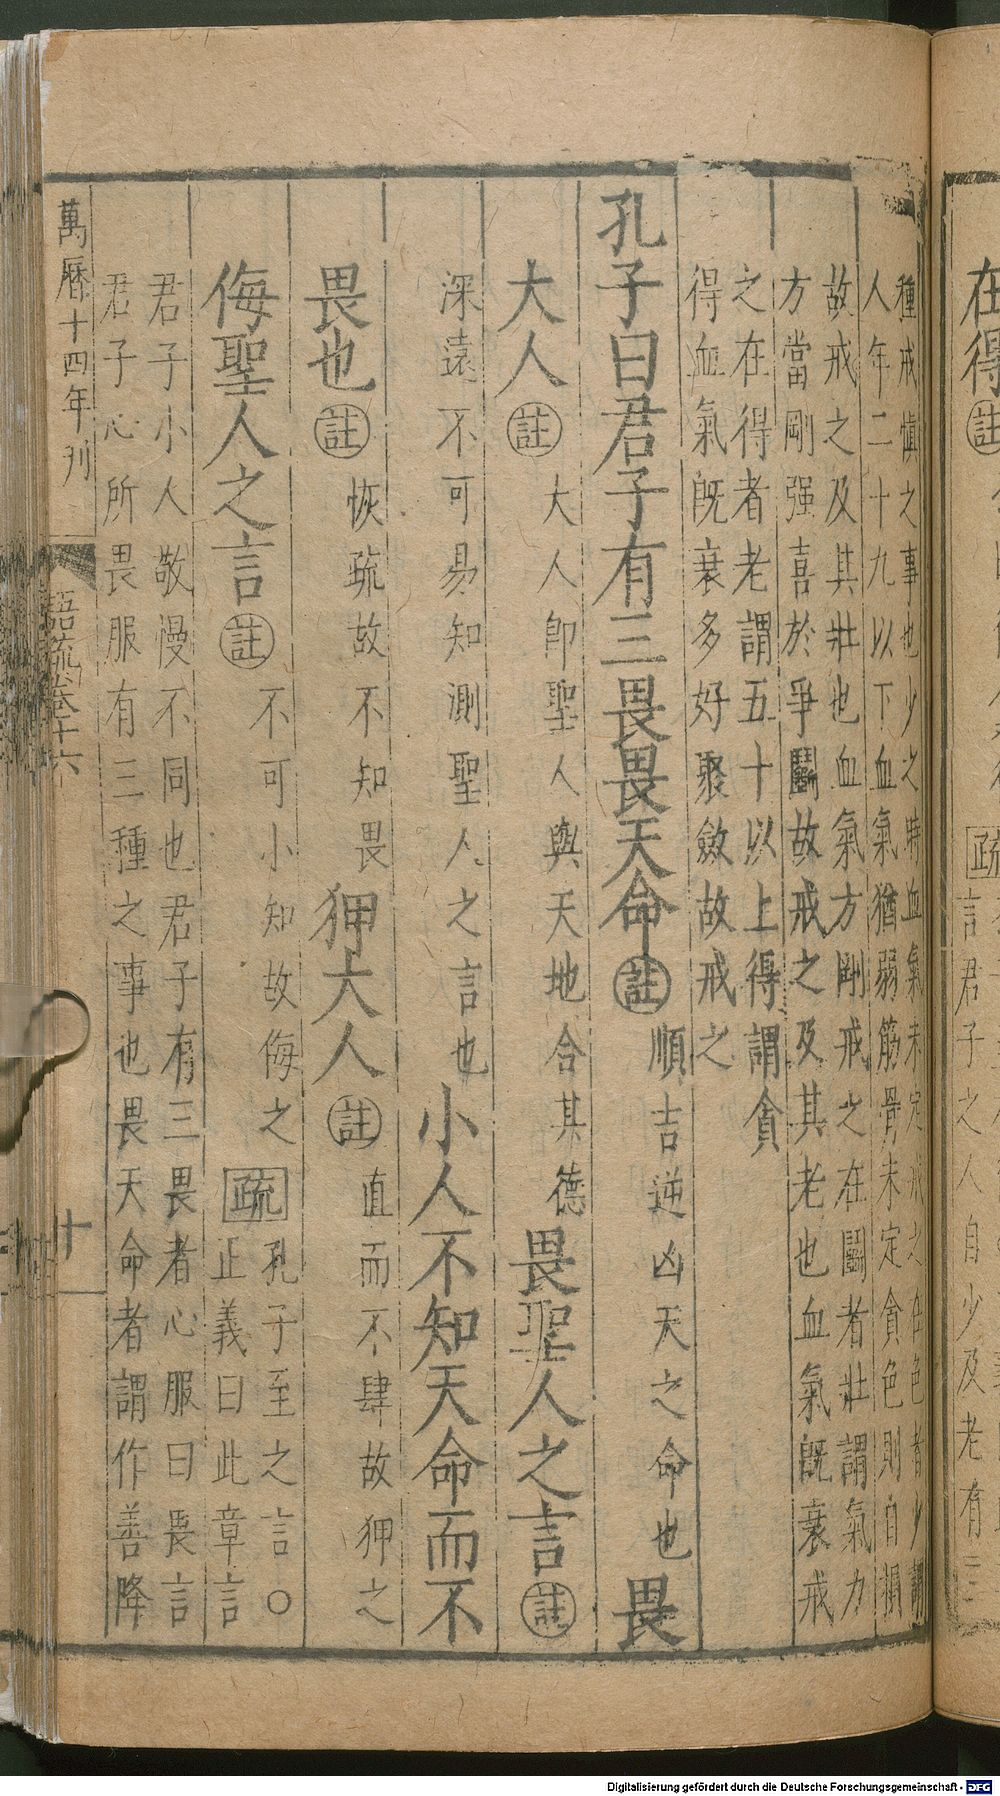 種戒慎之事也少之時血氣未定戒之在色者少謂
人年二十九以下血氣猶弱筋骨未定貪色則自損
故戒之及其壯也血氣方剛戒之在鬭者壯謂氣力
方當剛强喜於爭鬭故戒之及其老也血氣旣衰戒
之在得者老謂五十以上得謂貪
得血氣旣衰多好聚斂故戒之
孔子曰君子有三畏畏天命註順吉逆凶天之命也畏
大人註大人卽聖人與天地合其德畏聖人之言註
深遠不可易知測聖人之言也小人不知天命而不
畏也註恢疏故不知畏狎大人註直而不肆故狎之
侮聖人之言註不可小知故侮之疏孔子至之言○
正義曰此章言
君子小人敬慢不同也君子有三畏者心服曰畏言
君子心所畏服有三種之事也畏天命者謂作善降
萬曆十四年刊
語疏卷十六
十
在得註
疏
言君子之人自少及老有三
Digitalisierung gefördert durch die Deutsche Forschungsgemeinschaft - DFG